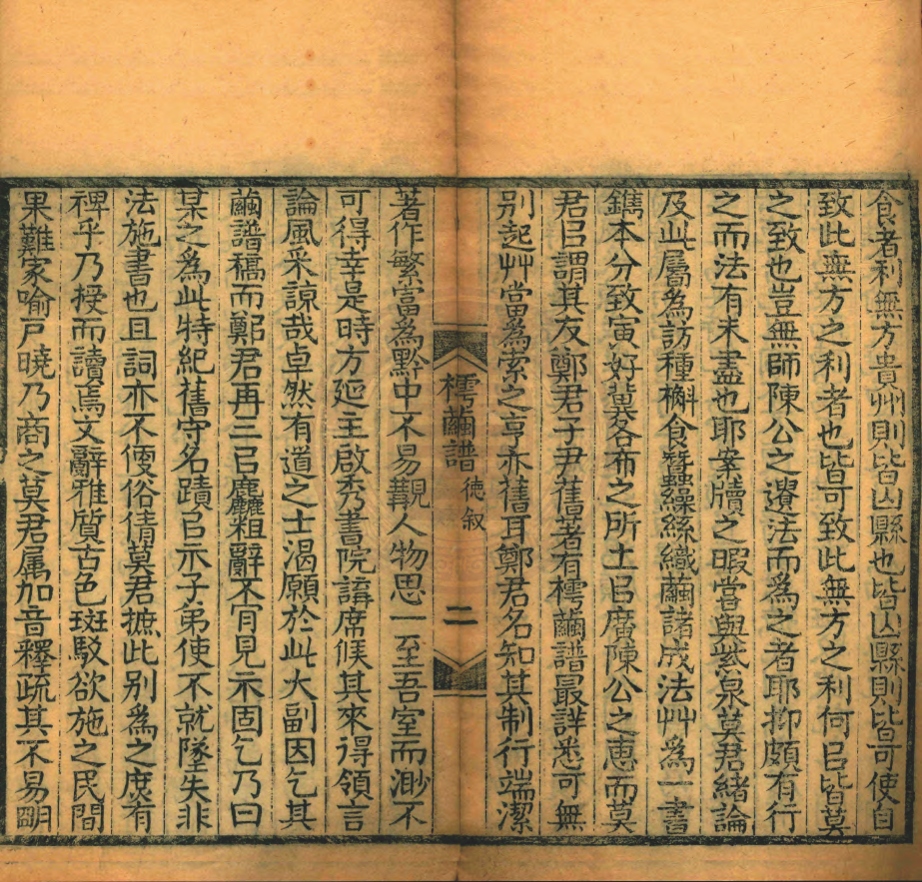 食者利無方貴州則皆山縣也皆山縣則皆可使自
致此無方之利者也皆可致此無方之利何㠯皆莫
之致也豈無師陳公之遺法而爲之者耶抑頗有行
之而法有未盡也耶案牘之暇嘗與紫泉莫君緒論
及此屬爲訪種槲食蠶繅絲織繭諸成法艸爲一書
鐫本分致寅好冀各布之所土㠯廣陳公之惠而莫
君㠯謂其友鄭君子尹舊著有樗繭譜最詳悉可無
別起艸當爲索之亨亦舊耳鄭君名知其制行端潔
樗繭譜 德叙 二
著作繁富爲黔中不易覯人物思一至吾室而渺不
可得幸是時方延主啟秀書院講席候其來得領言
論風采諒哉卓然有道之士渴願於此大副因乞其
繭譜稿而鄭君再三㠯麤粗辭不肎見示固乞乃曰
某之爲此特紀舊守名蹟㠯示子弟使不就墜失非
法施書也且詞亦不便俗倩莫君摭此别爲之庶有
裨乎乃授而讀焉文辭雅質古色斑駁欲施之民間
果難家喻戶曉乃商之莫君属加音釋疏其不易明